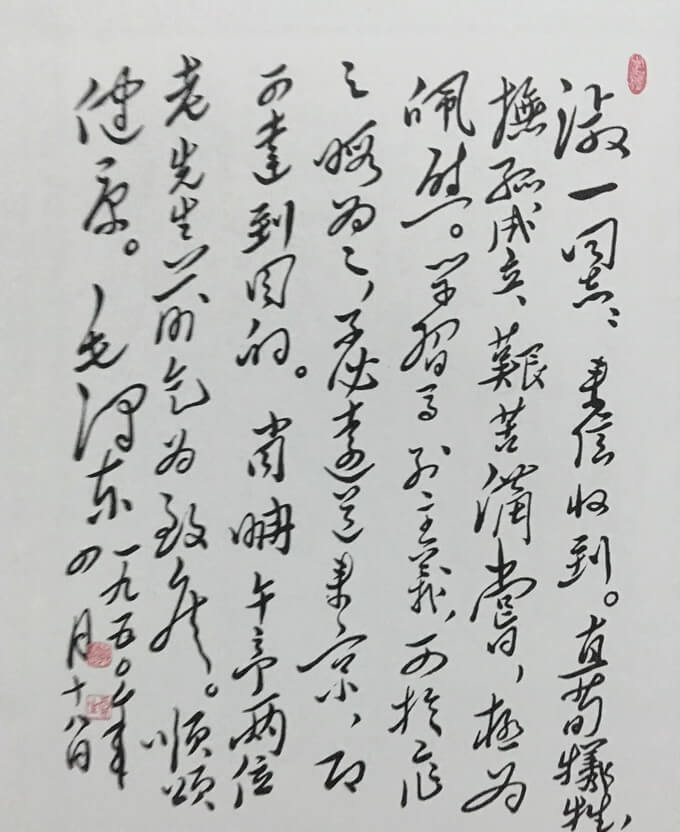 淑一同志、来信收到。直荀犧牲，
撫孤成立、艱苦備嘗，極为
佩慰。学習马列主義，可於工作
之暇为之，不必遠道来京，即
可達到目的。肖聃午亭两位
老先生前乞为致候。顺颂
健康。毛泽东 一九五〇年
四月十八日